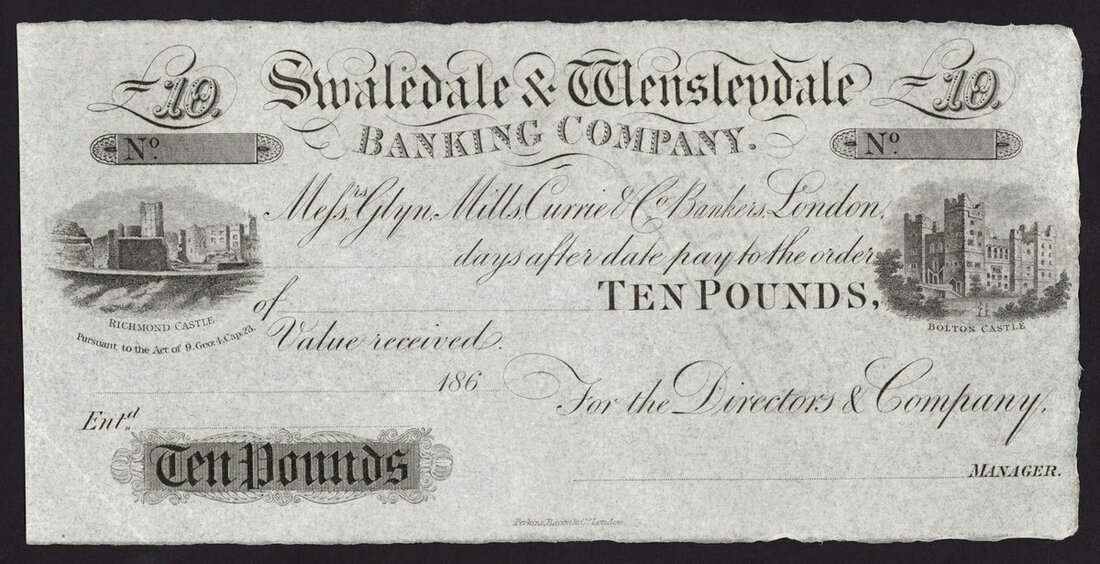 £10. Swaledale & Wensleydale £10.
BANKING COMPANY.
No. No.
Messrs. Glyn, Mills, Currie & Co. Bankers, London,
days after date pay to the order
of TEN POUNDS,
RICHMOND CASTLE
BOLTON CASTLE
Pursuant to the Act of 9. Geo: 4. Cap: 23.
Value received.
186
For the Directors & Company,
Entd.
Ten Pounds
MANAGER.
Perkins, Bacon & Co. London.